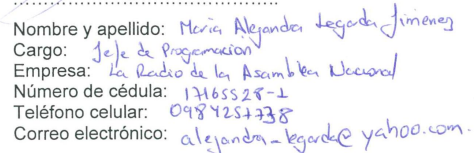 Nombre y apellido: Maria Alejandra Legarda Jimenez
Cargo: Jefe de Programacion
Empresa: La Radio de la Asamblea Nacional
Número de cédula: 17165528-1
Teléfono celular: 0984257738
Correo electrónico: alejandra_legarda@yahoo.com.